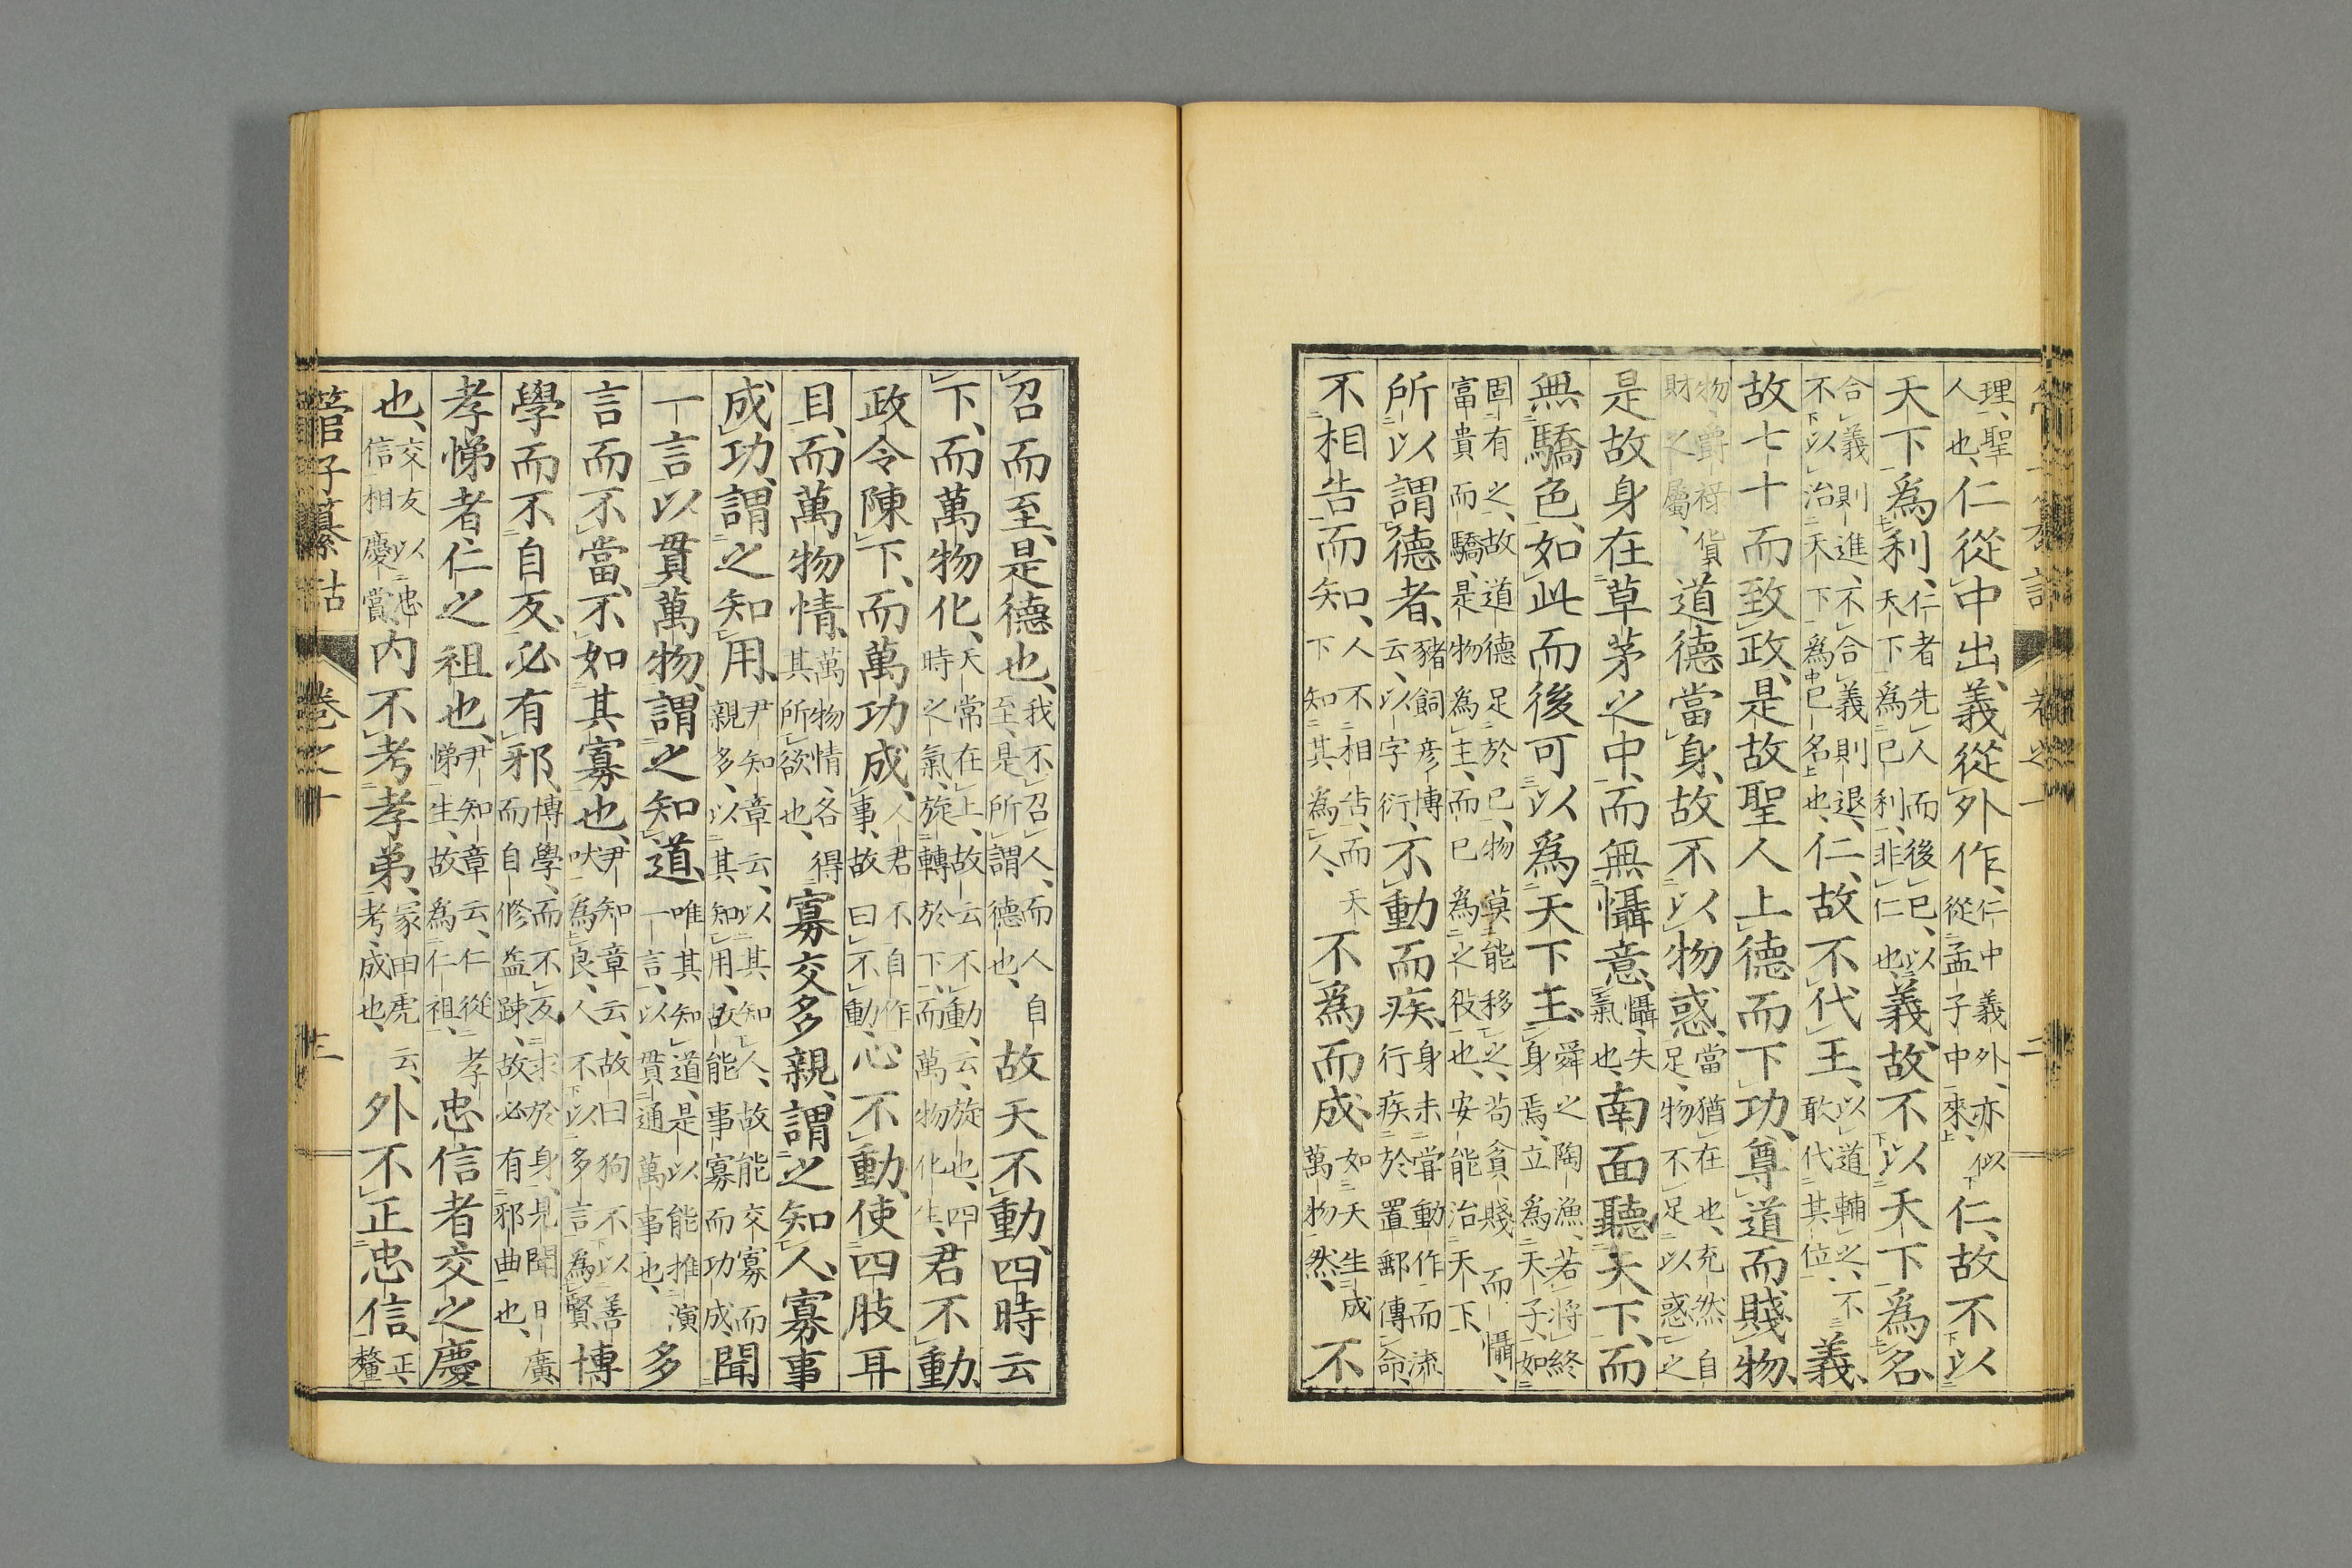 理、聖人也、仁從中出、義從外作、仁中義外、亦似從孟子中來、仁、故不以
天下爲利、仁者先人而後已、以天下爲已利、非仁也、義、故不以天下爲名、
合義則進、不合義則退、不以治天下爲已名也、仁、故不代王、以道輔之、不敢代其位、義、
故七十而致政、是故聖人上德而下功、尊道而賤物、
物爵祿貨財之屬、道德當身、故不以物惑、當猶在也、充然自足、物不足以惑之
是故身在草茅之中、而無懾意、懾、失氣也、南面聽天下、而
無驕色、如此而後可以爲天下王、舜之陶漁、若將終身焉、立爲天子、如
固有之、故道德足於已、物莫能移之、苟貧賤而懾、富貴而驕、是物爲主、而已爲之役也、安能治天下、
所以謂德者、豬飼彥博云、以字衍、不動而疾、身未嘗動作、而流行疾於置郵傳命、
不相告而知、人不相告、而天下知其爲人、不爲而成、如天生成萬物然、不
管子纂詁
卷之十
召而至、是德也、我不召人、而人自至、是所謂德也、故天不動、四時云
下、而萬物化、天常在上、故云不動、云、旋也、四時之氣、旋轉於下、而萬物化生、君不動、
政令陳下、而萬功成、人君不自作事、故曰不動、心不動、使四肢耳
目、而萬物情、萬物情、各得其所欲也、寡交多親、謂之知人、寡事
成功、謂之知用、尹知章云、以其知人、故能交寡而親多、以其知用、故能事寡而功成、聞
一言以貫萬物、謂之知道、唯其知道、是以能推演一言、以貫通萬事也、多
言而不當、不如其寡也、尹知章云、故曰狗不以善吠爲良、人不以多言爲賢、博
學而不自反、必有邪、博學、而不反求於身、見聞日廣、而自修益踈、故必有邪曲也、
孝悌者、仁之祖也、尹知章云、仁從孝悌生、故爲仁祖、忠信者、交之慶
也、交友以忠信相慶賞、內不考孝弟、冢田虎云、考、成也、外不正忠信、正、釐